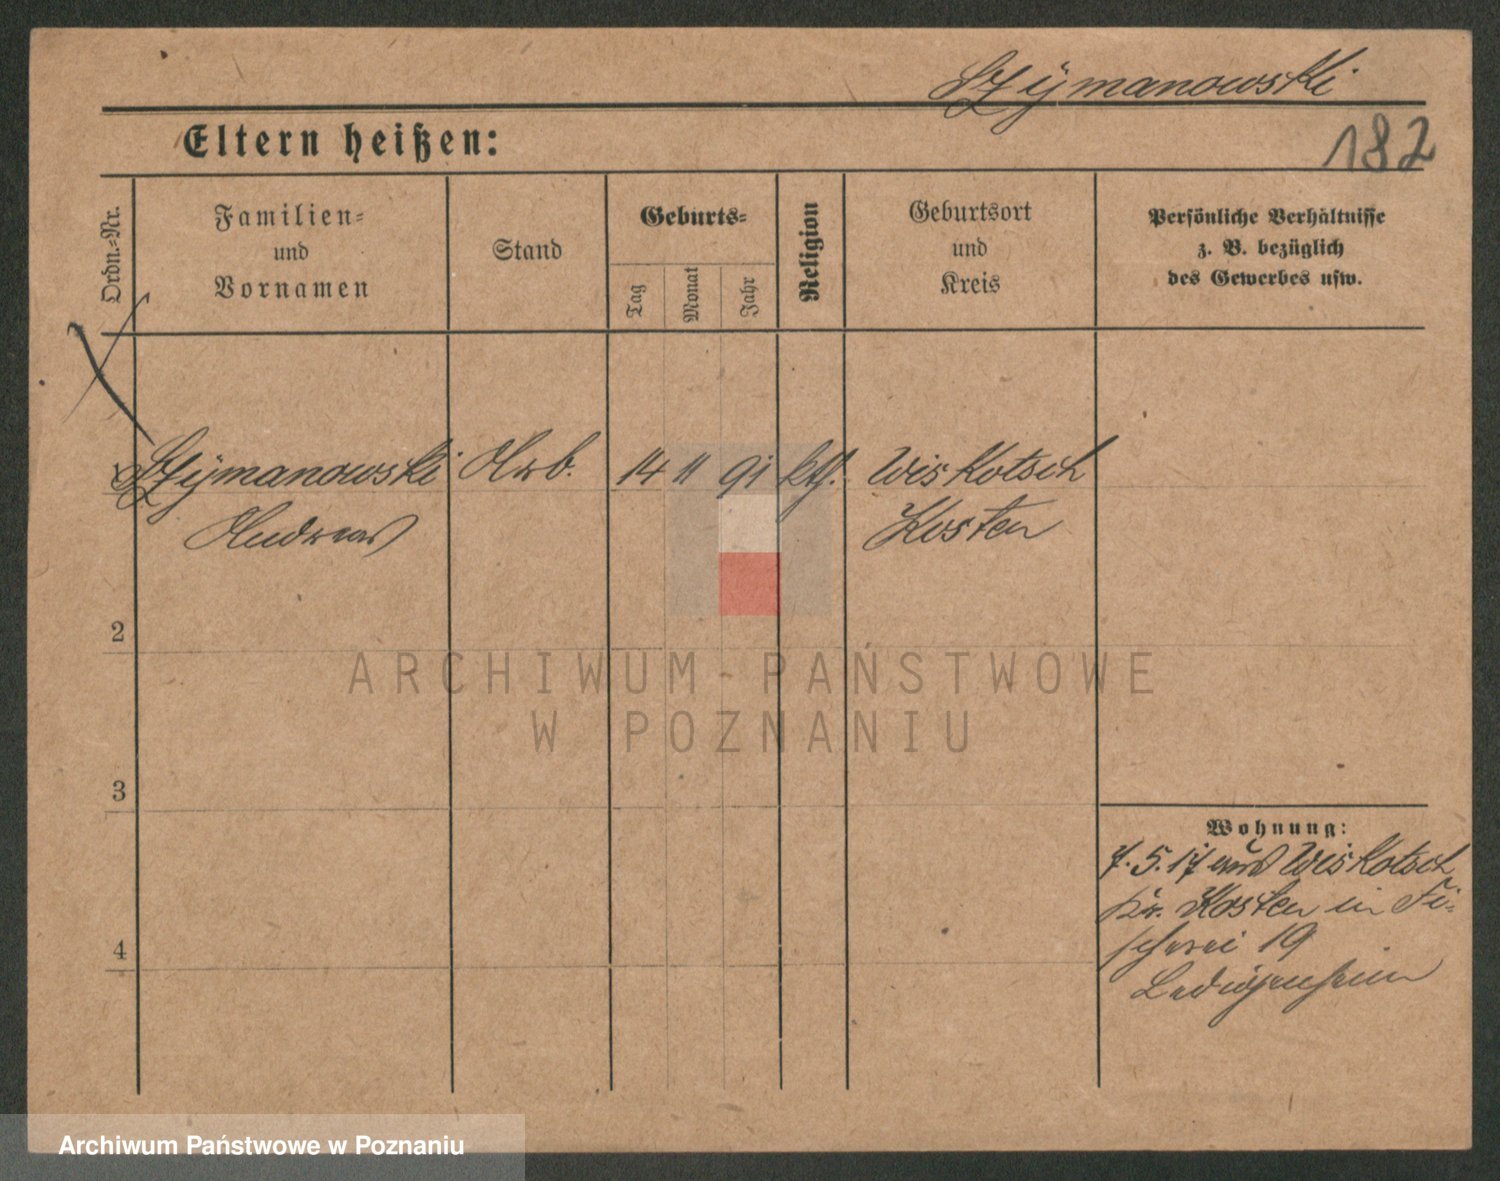 Szÿmanowski
182
Eltern heißen:
Ordn.-Nr.
Familien-
und
Vornamen
Stand
Geburts-
Tag
Monat
Jahr
Religion
Geburtsort
und
Kreis
Persönliche Verhältnisse
z. B. bezüglich
des Gewerbes usw.
1 Szÿmanowski Arb. 14 11 91 kth. Wiskotsch
Andreas Kosten
2
3
4
Wohnung:
7. 5. 17 aus Wiskotsch
Kr. Kosten in Fi-
scherei 19
ARCHIWUM PAŃSTWOWE
W POZNANIU
Archiwum Państwowe w Poznaniu